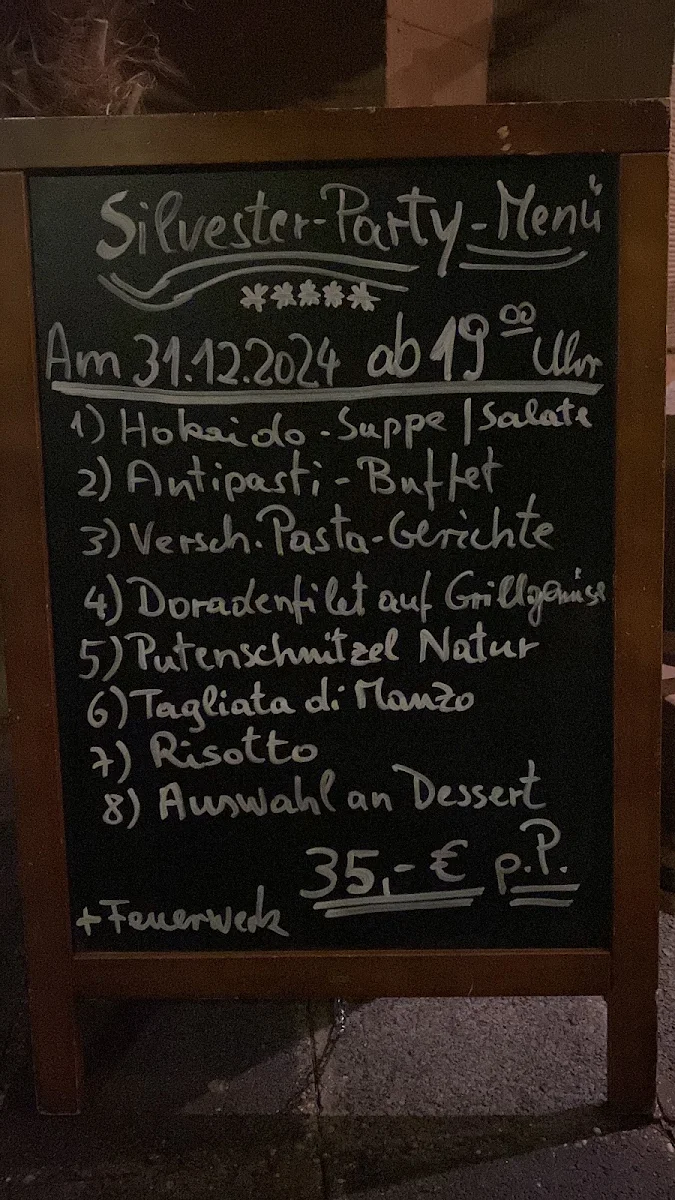 Silvester-Party-Menü
*****
Am 31.12.2024 ab 19⁰⁰ Uhr
1) Hokaido-Suppe | Salate
2) Antipasti-Buffet
3) Versch. Pasta-Gerichte
4) Doradenfilet auf Grillgemüse
5) Putenschnitzel Natur
6) Tagliata di Manzo
7) Risotto
8) Auswahl an Dessert
35,-€ p.P.
+Feuerwerk